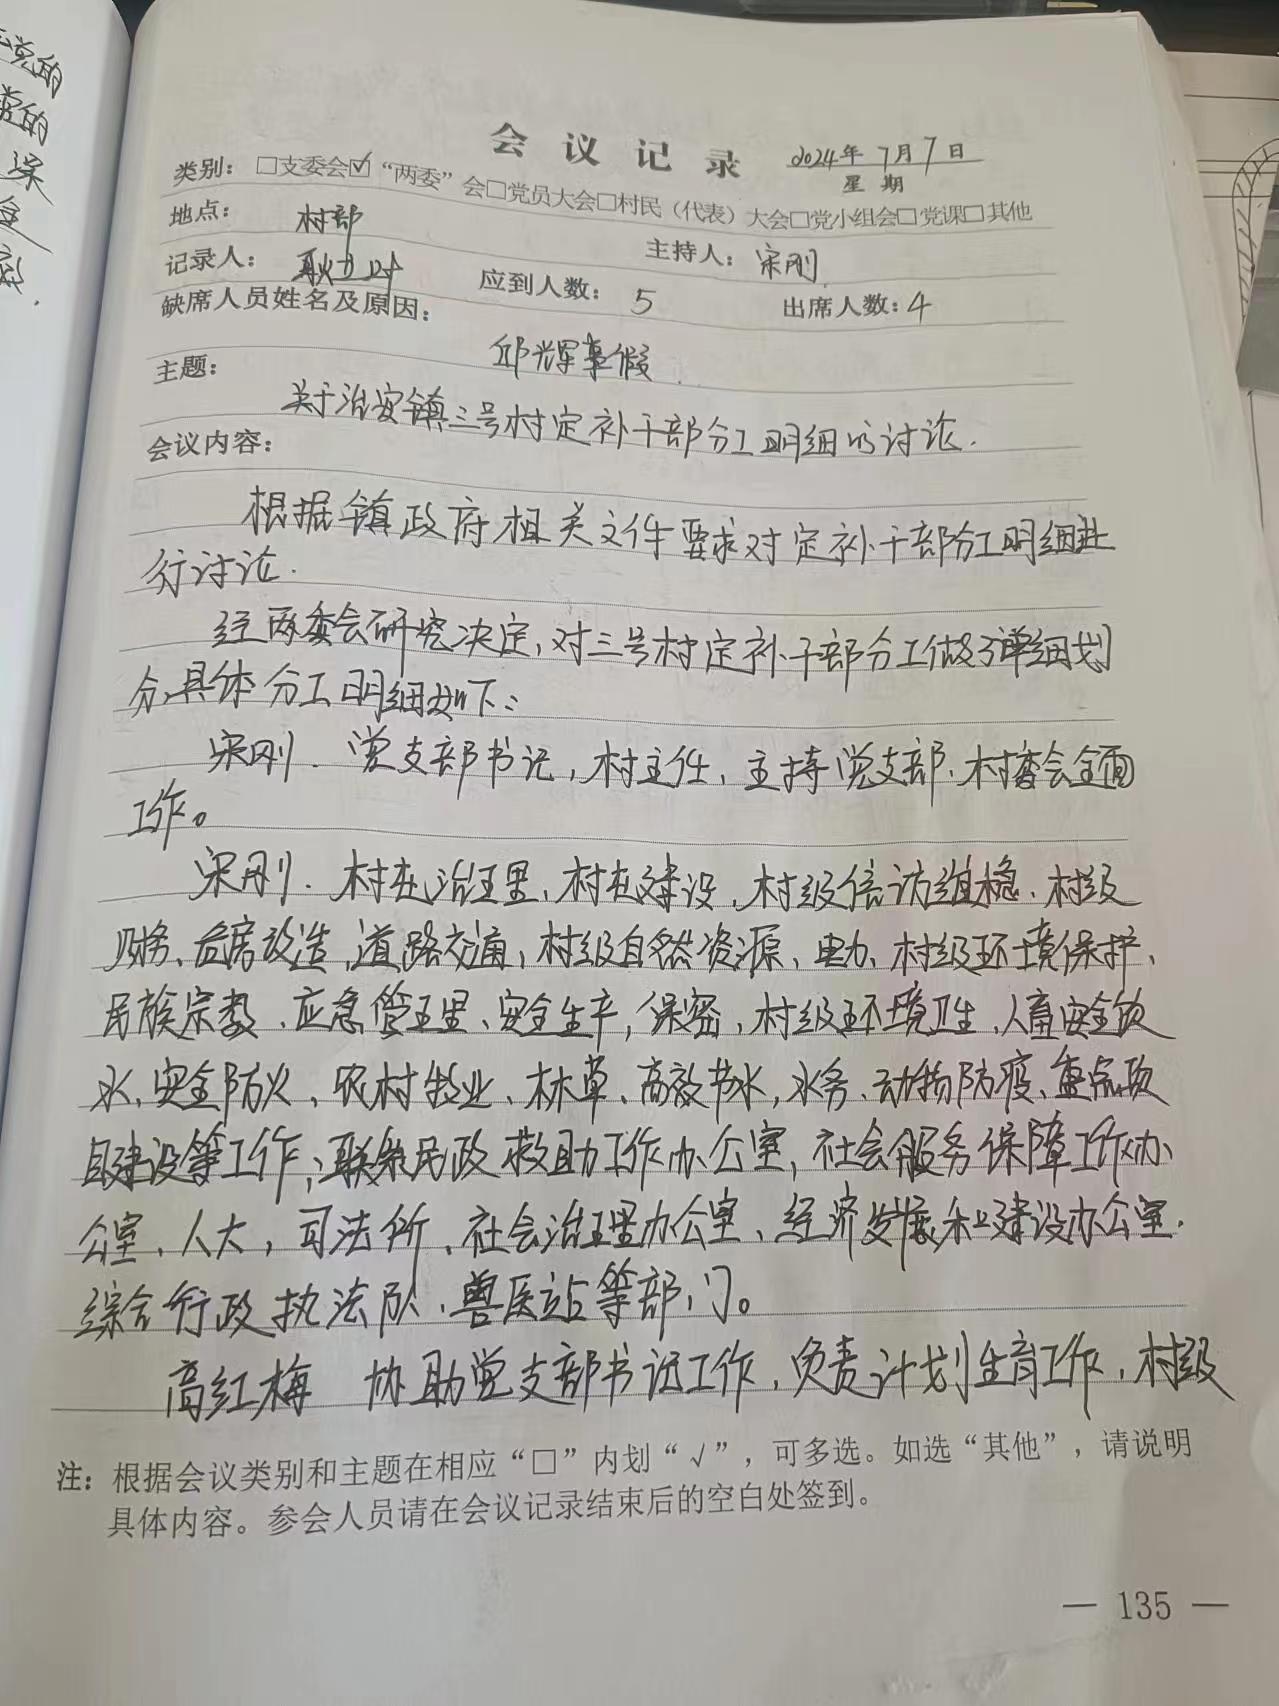 会议记录 2024年7月7日
星期
类别：□支委会☑“两委”会□党员大会□村民（代表）大会□党小组会□党课□其他
地点： 村部 主持人：宋刚
记录人： 应到人数：5 出席人数：4
缺席人员姓名及原因：
邱光军事假
主题：
关于治安镇三号村定补干部分工明细的讨论.
会议内容：
根据镇政府相关文件要求对定补干部分工明细进
行讨论.
经两委会研究决定,对三号村定补干部分工做了详细划
分,具体分工明细如下:
宋刚.党支部书记,村主任,主持党支部、村委会全面
工作。
宋刚.村在治理、村在建设、村级信访维稳、村级
财务、危房改造、道路交通,村级自然资源、电力、村级环境保护、
民族宗教、应急管理、安全生产,保密,村级环境卫生、人畜安全饮
水、安全防火、农村牧业、林草、高效节水,水务、动物防疫、重点项
目建设等工作;联系民政救助工作办公室,社会服务保障工作办
公室、人大,司法所、社会治理办公室、经济发展和建设办公室.
综合行政执法队、兽医站等部门。
高红梅 协助党支部书记工作,负责计划生育工作,村级
注：根据会议类别和主题在相应“□”内划“√”，可多选。如选“其他”，请说明
具体内容。参会人员请在会议记录结束后的空白处签到。
— 135 —
党的
党的
深